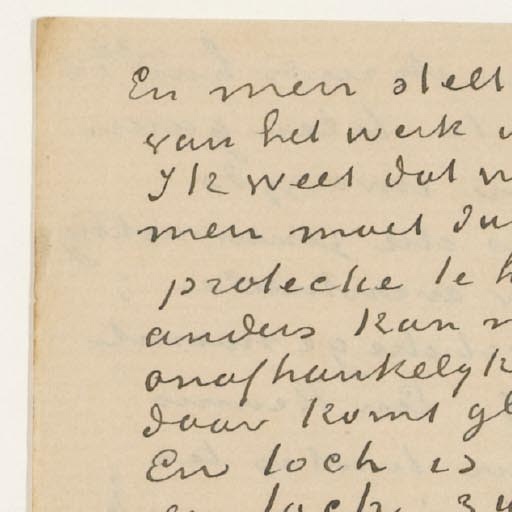 En men stelt
van het werk
Ik weet dat
men moet du
protectie te h
anders kan
onafhankelyk
daar komt gl
En toch is
en toch zy